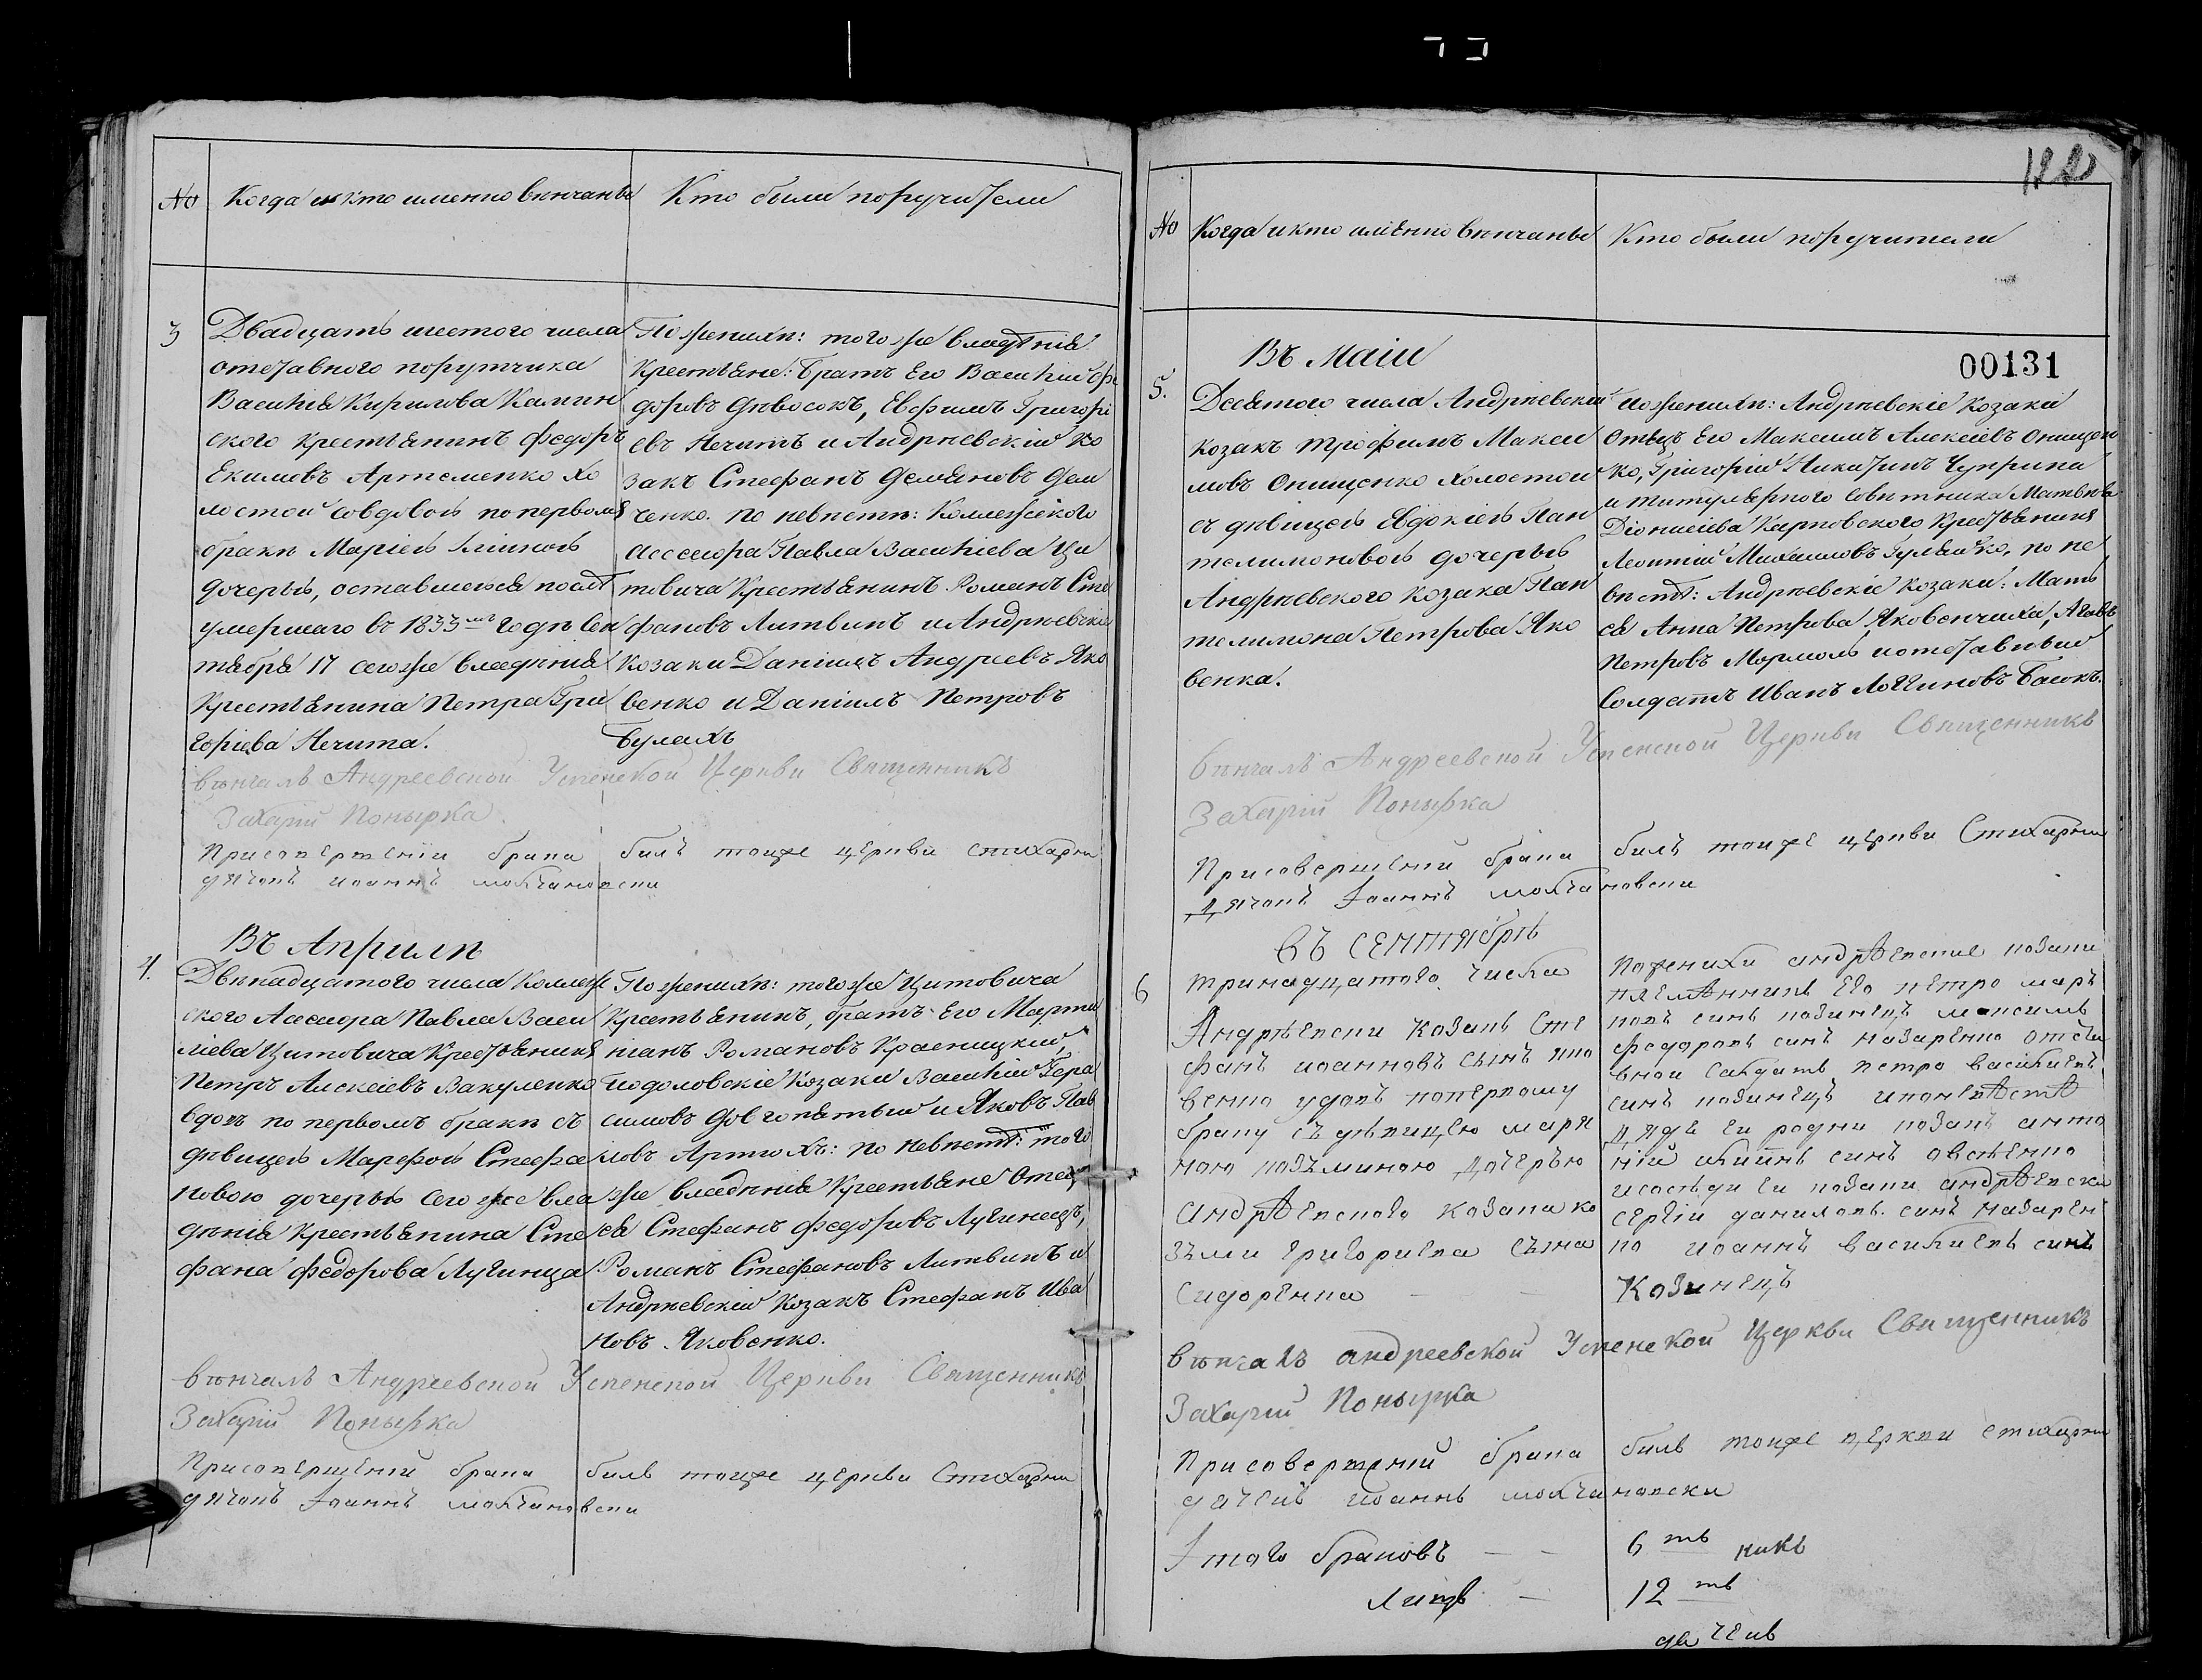 № Когда и кто именно вѣнчаны Кто были поручители
3 Двадцать шестого числа
отставного порутчика
Василія Кирилова Камин
ского крестьянинъ Федоръ
Екимовъ Артеменко хо
лостой совдовою по первомъ
бракѣ Маріею Ілїиною
дочерью, оставшеюся послѣ
умершаго въ 1833мъ годѣ Сен
тября 17 сего же владѣнія
Крестьянина Петра Гри
горіева Нечита.
По женихѣ: того же владѣнія
Крестьяне: братъ Его Василій Фе
доровъ Дѣвосокъ, Евфимъ Григорі
евъ Нечитъ и Андрѣевскій ко
закъ Стефанъ Демяновъ Дем
ченко. По невѣстѣ: Коллежского
Ассесора Павла Василіева Ци
товича Крестьянинъ Романъ Сте
фановъ Литвинъ и Андрѣевскіе
козаки Даніилъ Андріевъ Яко
венко и Даніилъ Петровъ
Булахъ
вѣнчалъ Андреевской Успенской Церкви Священникъ
Захарій Понырка.
Присовершеніи брака билъ тоиже церкви стихарни
дячокъ иоаннъ молчановски
Въ Априлѣ
4. Двѣнадцатого числа Коллеж
ского Ассесора Павла Васи
ліева Цитовича Крестьянинъ
Петръ Алексіевъ Вакуленко
вдовъ по первомъ бракѣ съ
дѣвицею Марфою Стефа
новою дочерью сего же вла
дѣнія Крестьянина Сте
фана Федорова Лугинца
По женихѣ: того же Цитовича
Крестьянинъ, братъ Его Марти
ніанъ Романовъ Красницкий,
Подоловскіе Козаки Василій Гера
симовъ Довгопятый и Яковъ Пав
ловъ Артюхъ: по невѣстѣ: того
же владѣнія Крестьяне Отец
ея Стефанъ Федоровъ Лугинецъ,
Романъ Стефановъ Литвинъ и
Андрѣевскій Козакъ Стефанъ Ива
новъ Яковенко.
вѣнчалъ Андреевской Успенской Церкви Священникъ
Захарій Понырка
Присовершеніи брака билъ тоиже церкви Стихарни
дячокъ Іоаннъ молчановски
№ Когда и кто имѣнно вѣнчаны Кто были поручители
00131
Въ Маіи
5. Десятого числа Андрѣевский
козакъ Трофимъ Макси
мовъ Онищенко холостои
съ дѣвицею Евдокіею Пан
телимоновою дочерью
Андрѣевского козака Пан
телимона Петрова Яко
венка.
по женихѣ: Андрѣевскіе Козаки
Отецъ Его Максимъ Алексіевъ Онищен
ко, Григорій Никитинъ Чуприна
и титулярного совѣтника Матвѣя
Діонисіева Карповского Крестьянинъ
Леонтий Михаиловъ Гуляйко. по не
вѣстѣ: Андрѣевскіе Козаки: Мать
ея Анна Петрова Яковенчиха,
Петровъ Мормоль и отставный
Солдатъ Иванъ Логиновъ Басокъ.
вѣнчалъ Андреевской Успенской Церкви Священникъ
Захарій Понырка
Присовершеніи брака билъ тоиже церкви Стихарни
дячокъ Іоаннъ молчановски
въ сентябрѣ
6 тринадцатого числа
Андрѣевски козакъ Сте
фанъ иоанновъ сынъ яко
венко удовъ поперпому
браку съ дѣвицею маря
ною козъминою дочерью
андрѣевского козака ко
зъми григориева съна
Сидоренка
поженихи андрѣевские козаки
племѣнникъ его петро марк
ковъ синъ козинецъ максимъ
федоровъ синъ назаренко отста
вной салдатъ петро василиевъ
синъ козинецъ и поневѣстѣ
дядя ен родни козакъ анто
ній синъ овсѣенко
исосѣди ея козаки андрѣевски
сергіи даниловъ синъ назарен
ко иоаннъ василиевъ синъ
Козинецъ
вѣнчалъ андреевской Успенской Церкви Священникъ
Захарій Понырка
Присовершеніи брака билъ тоиже церкви стихарни
дячекъ иоаннъ молчановски
Ітого браковъ — — 6ть
Лицъ — 12ть